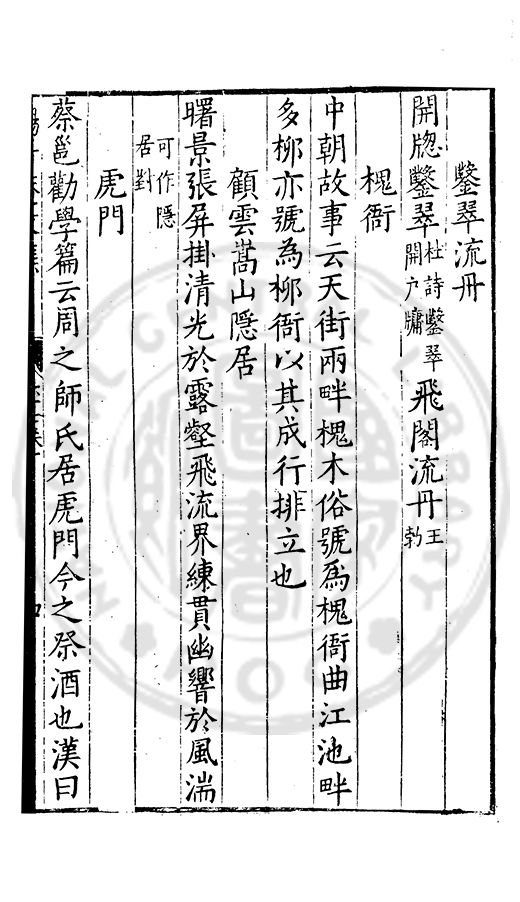 鑿翠流丹
開牕鑿翠杜詩鑿翠開户牖飛閣流丹王勃
槐衙
中朝故事云天街兩畔槐木俗號爲槐衙曲江池畔
多栁亦號爲栁衙以其成行排立也
顧雲嵩山隱居
曙景張屏掛清光於露壑飛流界練貫幽響於風湍
可作隱居對
虎門
蔡邕勸學篇云周之師氏居虎門今之祭酒也漢曰